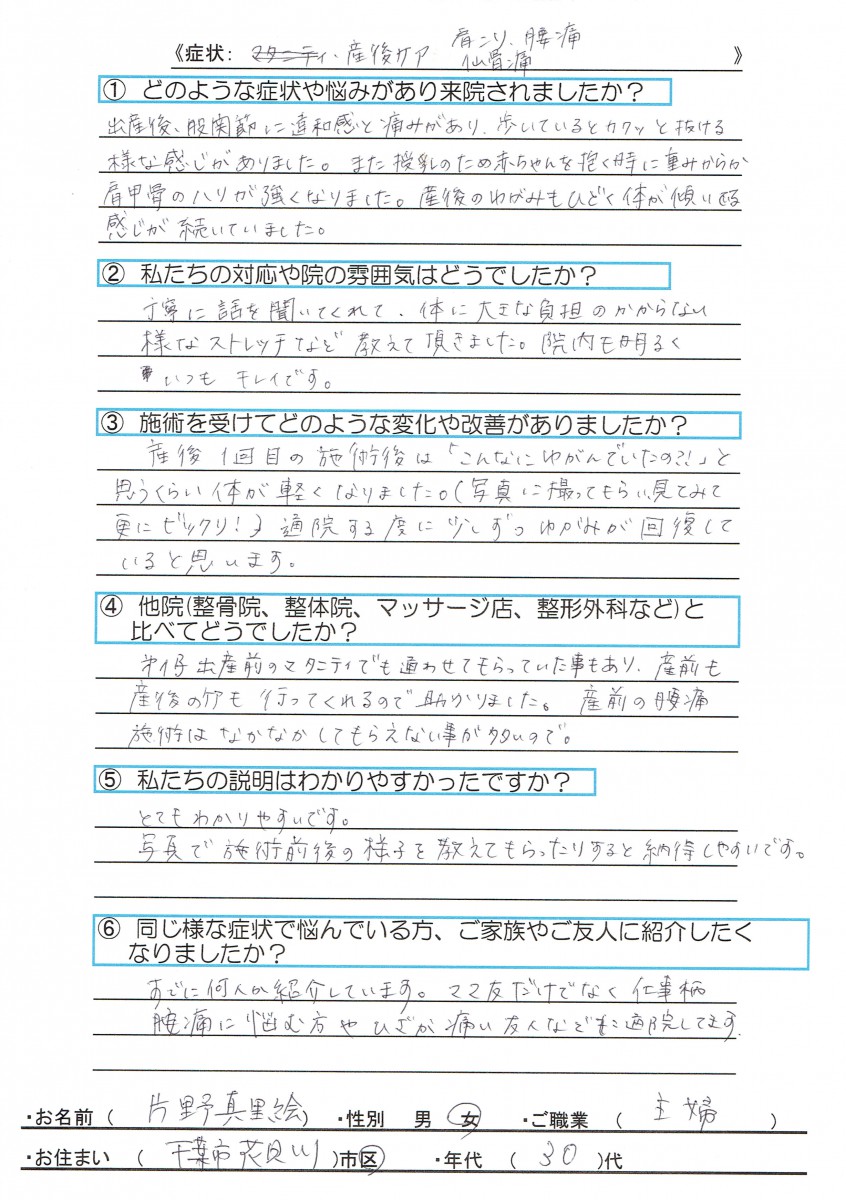 《症状: マタニティ・産後ケア 肩こり、腰痛 》
仙骨痛
① どのような症状や悩みがあり来院されましたか？
出産後、股関節に違和感と痛みがあり、歩いているとカクッと抜ける
様な感じがありました。また授乳のため赤ちゃんを抱く時に重みからか
肩甲骨のハリが強くなりました。産後のゆがみもひどく体が傾いてる
感じが続いていました。
② 私たちの対応や院の雰囲気はどうでしたか？
丁寧に話を聞いてくれて、体に大きな負担のかからない
様なストレッチなど教えて頂きました。院内も明るく
いつもキレイです。
③ 施術を受けてどのような変化や改善がありましたか？
産後1回目の施術後は「こんなにゆがんでいたの?!」と
思うくらい体が軽くなりました。(写真に撮ってもらい見てみて
更にビックリ!) 通院する度に少しずつゆがみが回復して
いると思います。
④ 他院(整骨院、整体院、マッサージ店、整形外科など)と
比べてどうでしたか？
第1仔出産前のマタニティでも通わせてもらっていた事もあり、産前も
産後のケアも行ってくれるので助かりました。産前の腰痛
施術はなかなかしてもらえない事が多いので。
⑤ 私たちの説明はわかりやすかったですか？
とてもわかりやすいです。
写真で施術前後の様子を教えてもらったりすると納得しやすいです。
⑥ 同じ様な症状で悩んでいる方、ご家族やご友人に紹介したく
なりましたか？
すでに何人か紹介しています。ママ友だけでなく仕事柄
腰痛に悩む方やひざが痛い友人なども通院してます。
・お名前 ( 片野真里絵 ) ・性別 男 女 ・ご職業 ( 主婦 )
・お住まい ( 千葉市花見川 )市区 ・年代 ( 30 )代